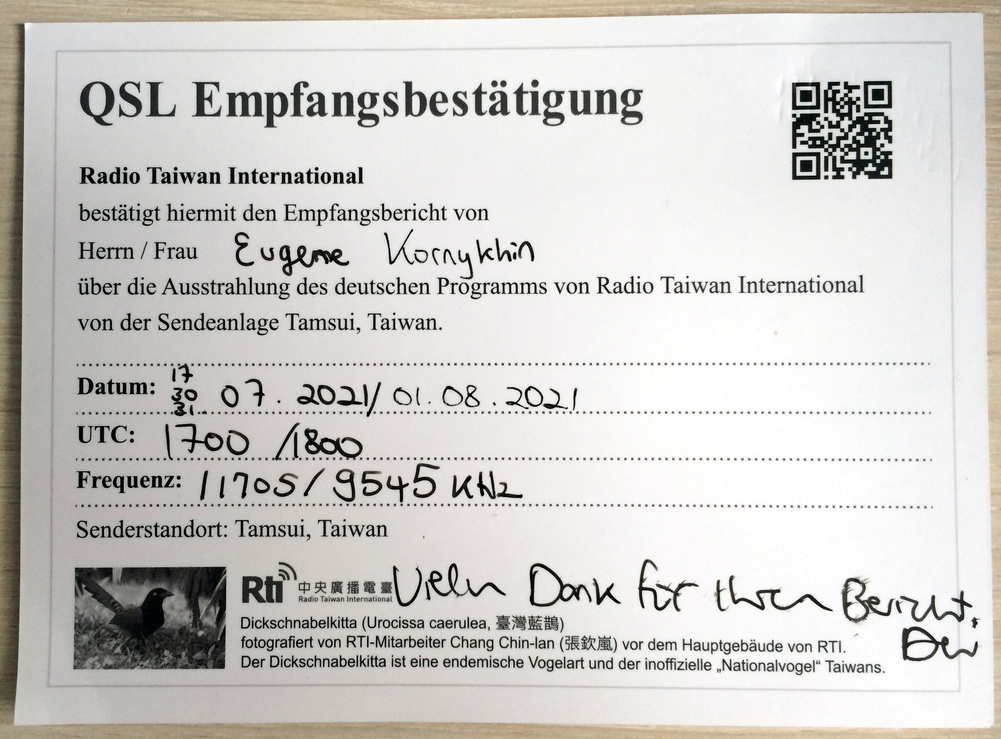 QSL Empfangsbestätigung
Radio Taiwan International
bestätigt hiermit den Empfangsbericht von
Herrn / Frau Eugene Kornykhin
über die Ausstrahlung des deutschen Programms von Radio Taiwan International
von der Sendeanlage Tamsui, Taiwan.
17
Datum: 30 07. 2021/ 01.08.2021
31.
UTC: 1700 /1800
Frequenz: 11705/9545 KHz
Senderstandort: Tamsui, Taiwan
Rti 中央廣播電臺 Vielen Dank für Ihren Bericht.
Radio Taiwan International
Dickschnabelkitta (Urocissa caerulea, 臺灣藍鵲)
fotografiert von RTI-Mitarbeiter Chang Chin-lan (張欽嵐) vor dem Hauptgebäude von RTI.
Der Dickschnabelkitta ist eine endemische Vogelart und der inoffizielle „Nationalvogel“ Taiwans.